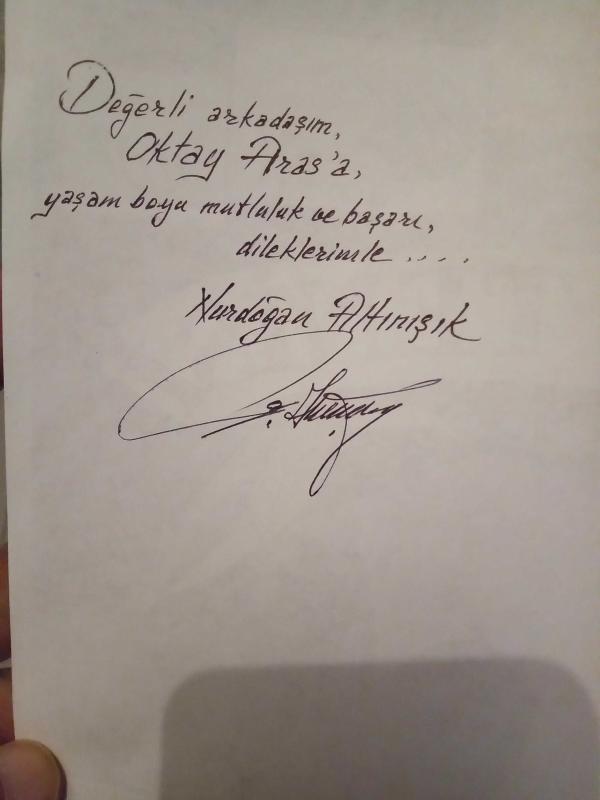 Değerli arkadaşım,
Oktay Aras'a,
yaşam boyu mutluluk ve başarı,
dileklerimle ....
Nurdoğan Altınışık